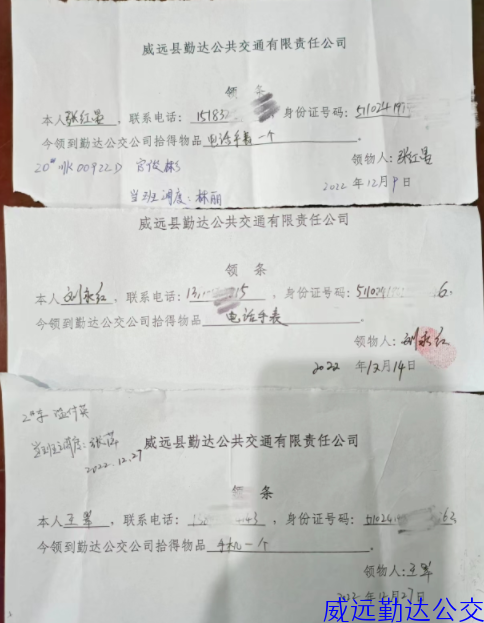 威远县勤达公共交通有限责任公司
领 条
本人张红昌,联系电话:15183,身份证号码:511024197
今领到勤达公交公司拾得物品电话手表一个
领物人:张红昌
20# 川K00922D 官俊彬
2022年12月9日
当班调度:林丽
威远县勤达公共交通有限责任公司
领 条
本人刘永红,联系电话:13 15,身份证号码:511024 6.
今领到勤达公交公司拾得物品 电话手表
领物人:刘永红
2022年12月14日
2#车
当班主调度:张萍
2022.12.27
威远县勤达公共交通有限责任公司
领 条
本人王 ,联系电话:13 43,身份证号码:51024 62
今领到勤达公交公司拾得物品 手机一个 。
领物人:王
2022年12月27日
威远勤达公交